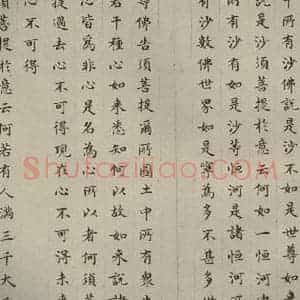 所有沙佛說是沙不如是世尊如
說是沙須菩提於意云何如一恒河
所有沙有如是沙等恒河是諸恒河
有沙數佛世界如是寧為多不甚多
尊佛告須菩提爾所國土中所有眾
若干種心如來悉知何以故如來說
心皆為非心是名為心所以者何須菩
提過去心不可得現在心不可得未
心不可得
須菩提於意云何若有人滿三千大